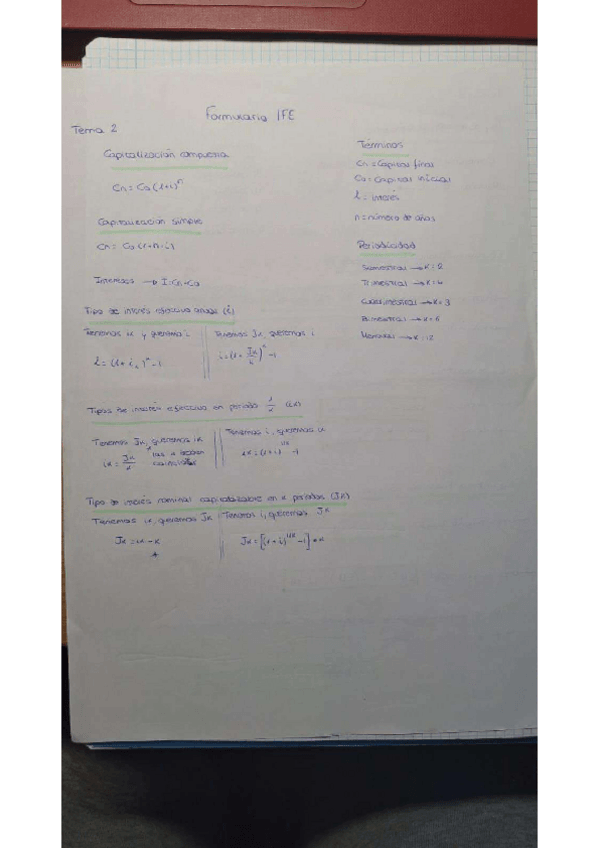 Formulario IFE
Tema 2
Capitalización compuesta
Cn = Co(1+i)^n
Capitalización simple
Cn = Co(1+n·i)
Intereses → I = Cn - Co
Tipo de interés efectivo anual (i)
Tenemos ik y queremos i
i = (1+ik)^k - 1
Tenemos Jk, queremos i
i = (1+ Jk/k)^k - 1
Tipos de interés efectivo en periodo 1/k (ik)
Tenemos Jk, queremos ik
ik = Jk/k
Tenemos i, queremos ik
ik = (1+i)^1/k - 1
Tipo de interés nominal capitalizable en k periodos (Jk)
Tenemos ik, queremos Jk
Jk = ik · k
Tenemos i, queremos Jk
Jk = [(1+i)^1/k - 1] · k
Términos
Cn = Capital final
Co = Capital inicial
i = interés
n = número de años
Periodicidad
Semestral → k = 2
Trimestral → k = 4
Cuatrimestral → k = 3
Bimestral → k = 6
Mensual → k = 12